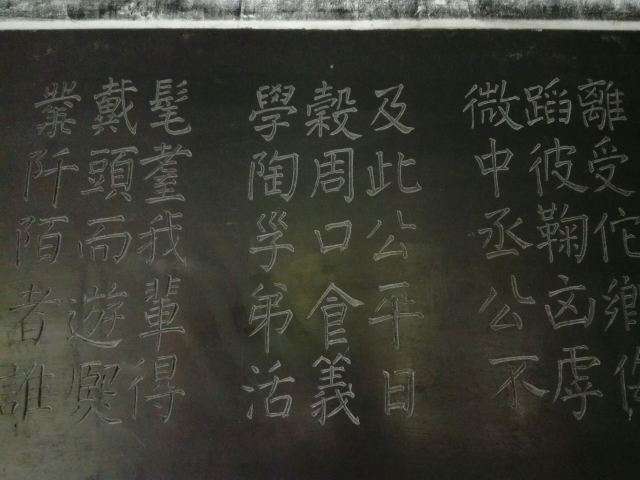 離受佗鄉
蹈彼鞠凶虐
微中丞公不
及此公平日
穀周口食義
學陶孚弟活
髦耋我輩得
戴頭而遊熙
業阡陌者誰